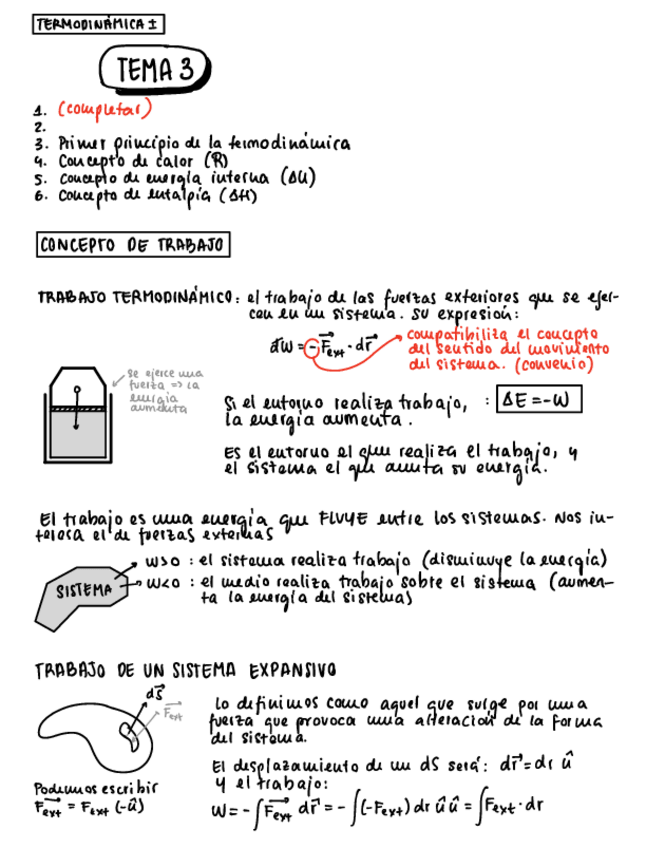 TERMODINÁMICA I
TEMA 3
1. (completar)
2.
3. Primer principio de la termodinámica
4. Concepto de calor (R)
5. Concepto de energía interna (ΔU)
6. Concepto de entalpía (ΔH)
CONCEPTO DE TRABAJO
TRABAJO TERMODINÁMICO: el trabajo de las fuerzas exteriores que se ejer-
cen en un sistema. Su expresión:
đW = -F⃗ext · dr⃗
compatibiliza el concepto
del sentido del movimiento
del sistema. (convenio)
se ejerce una
fuerza => la
energía
aumenta
Si el entorno realiza trabajo,
la energía aumenta.
: ΔE = -W
Es el entorno el que realiza el trabajo, y
el sistema el que aumta su energía.
El trabajo es una energía que FLUYE entre los sistemas. Nos in-
teresa el de fuerzas externas
SISTEMA
W>0 : el sistema realiza trabajo (disminuye la energía)
W<0 : el medio realiza trabajo sobre el sistema (aumen-
ta la energía del sistemas)
TRABAJO DE UN SISTEMA EXPANSIVO
dS⃗
F⃗ext
Podemos escribir
F⃗ext = Fext (-û)
Lo definimos como aquel que surge por una
fuerza que provoca una alteración de la forma
del sistema.
El desplazamiento de un dS será: dr⃗ = dr û
y el trabajo:
W = -∫F⃗ext dr⃗ = -∫(-Fext) dr û û = ∫Fext · dr